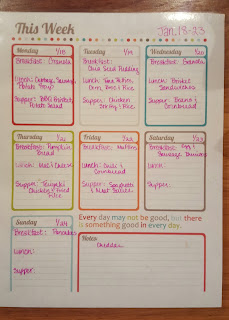 This Week
Jan. 18-23
Monday 1/18
Breakfast: Granola
Lunch: Cabbage, Sausage,
Potato Soup
Supper: BBQ Brisket
Potato Salad
Tuesday 1/19
Breakfast:
Chia Seed Pudding
Lunch:
Corn, Peas & Rice
Supper: Chicken
& Rice
Wednesday 1/20
Breakfast: Granola
Lunch: Brisket
Sandwiches
Supper: Beans &
Cornbread
Thursday 1/21
Breakfast: Pumpkin
Bread
Lunch: Mac & Cheese
Supper: Teriyaki
Chicken & Fried
Rice
Friday 1/22
Breakfast: Muffins
Lunch: Chili &
Cornbread
Supper: Spaghetti
& Meat Sauce
Saturday 1/23
Breakfast: Egg &
Sausage Burritos
Lunch:
Supper:
Sunday 1/24
Breakfast: Pancakes
Lunch:
Supper:
Every day may not be good, but there
is something good in every day.
Notes